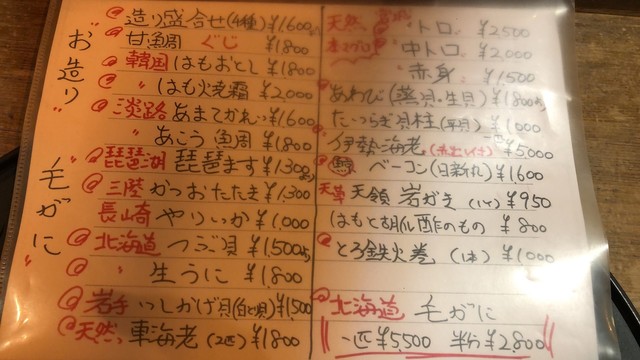 お造り
毛がに
造り盛合せ(4種) ¥1600
甘鯛 ぐじ ¥1800
韓国 はもおとし ¥1800
〃 はも焼霜 ¥2,000
淡路 あまてかれい ¥1600
あこう鯛 ¥1800
琵琶湖 琵琶ます ¥1300
三陸 かつおたたき ¥1,300
長崎 やりいか ¥1,000
北海道 つぶ貝 ¥1,500
〃 生うに ¥1,800
岩手 いしかげ貝 ¥1500
天然 車海老 (2匹) ¥1800
天然
本マグロ
トロ ¥2500
中トロ ¥2,000
赤身 ¥1,500
あわび(蒸貝・生貝) ¥1800
たいらぎ貝柱(平貝) ¥1000
伊勢海老 ¥5,000
鯨 ベーコン(日新丸) ¥1600
天草 天領岩がき (1ケ) ¥950
はもと胡瓜酢のもの ¥800
とろ鉄火巻 (1本) ¥1000
北海道 毛がに
一匹 ¥5,500 半分 ¥2800